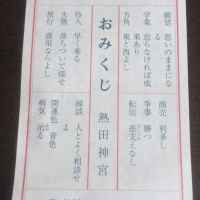 願望 思いのままになる
学業 怠らなければ成果あり
方角 東と西よし
待人 早く来る
失物 落ちついて探せ
旅行 商用ならよし
おみくじ
熱田神宮
商売 利多し
争事 勝つ
転居 差支えなし
縁談 人とよく相談せよ
開運色 青色
病気 治る